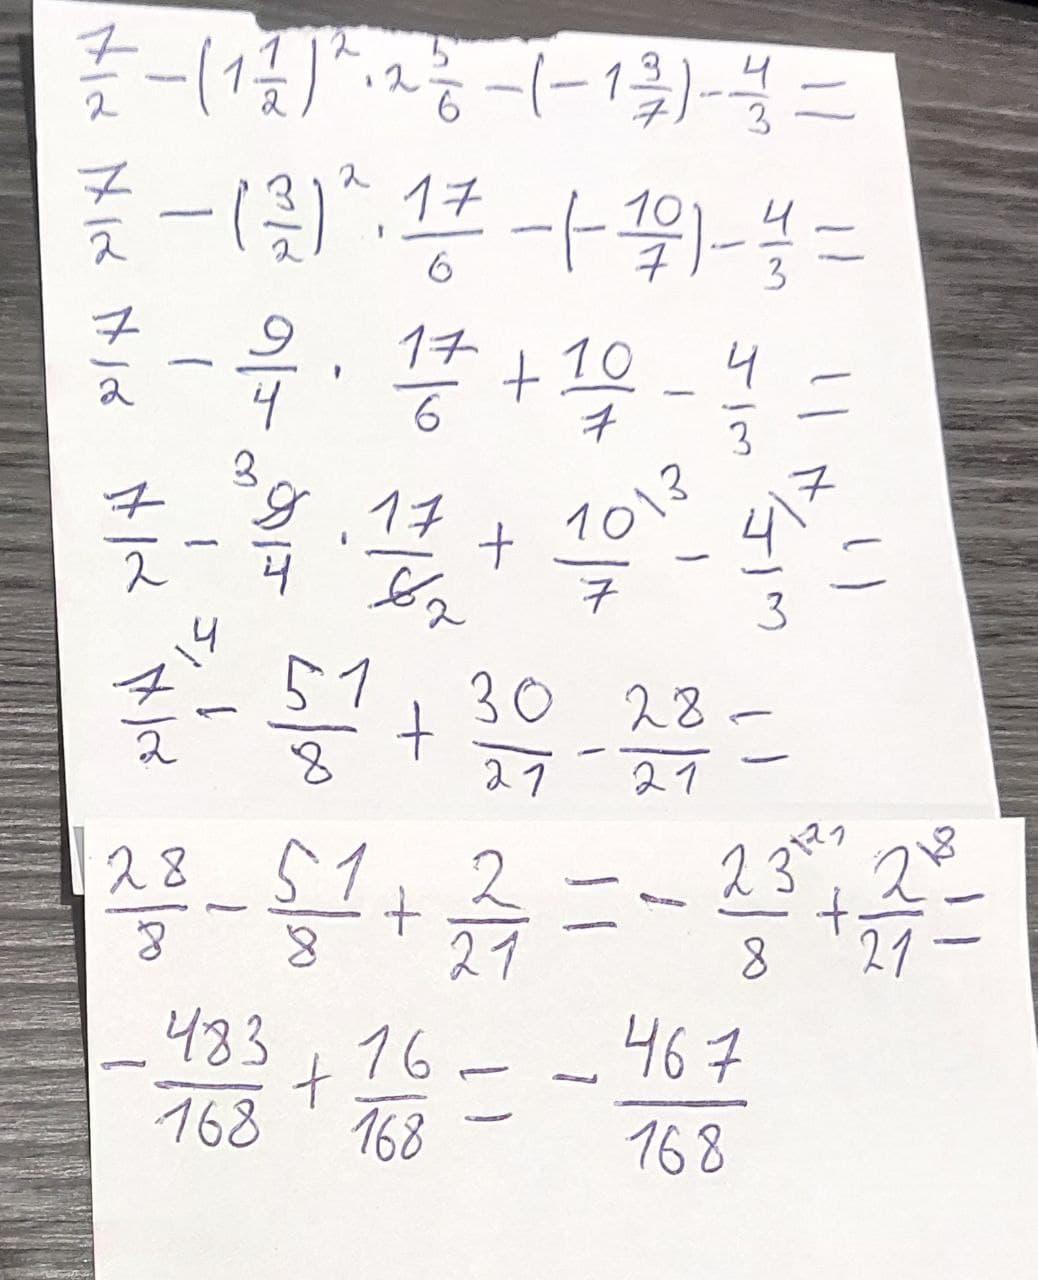 7/2 - (1 1/2)² · 2 5/6 - (-1 3/7) - 4/3 =
7/2 - (3/2)² · 17/6 - (-10/7) - 4/3 =
7/2 - 9/4 · 17/6 + 10/7 - 4/3 =
7/2 - ³9/4 · 17/6₂ + 10\³/7 - 4\⁷/3 =
7\⁴/2 - 51/8 + 30/21 - 28/21 =
28/8 - 51/8 + 2/21 = - 23\²¹/8 + 2\⁸/21 =
- 483/168 + 16/168 = - 467/168